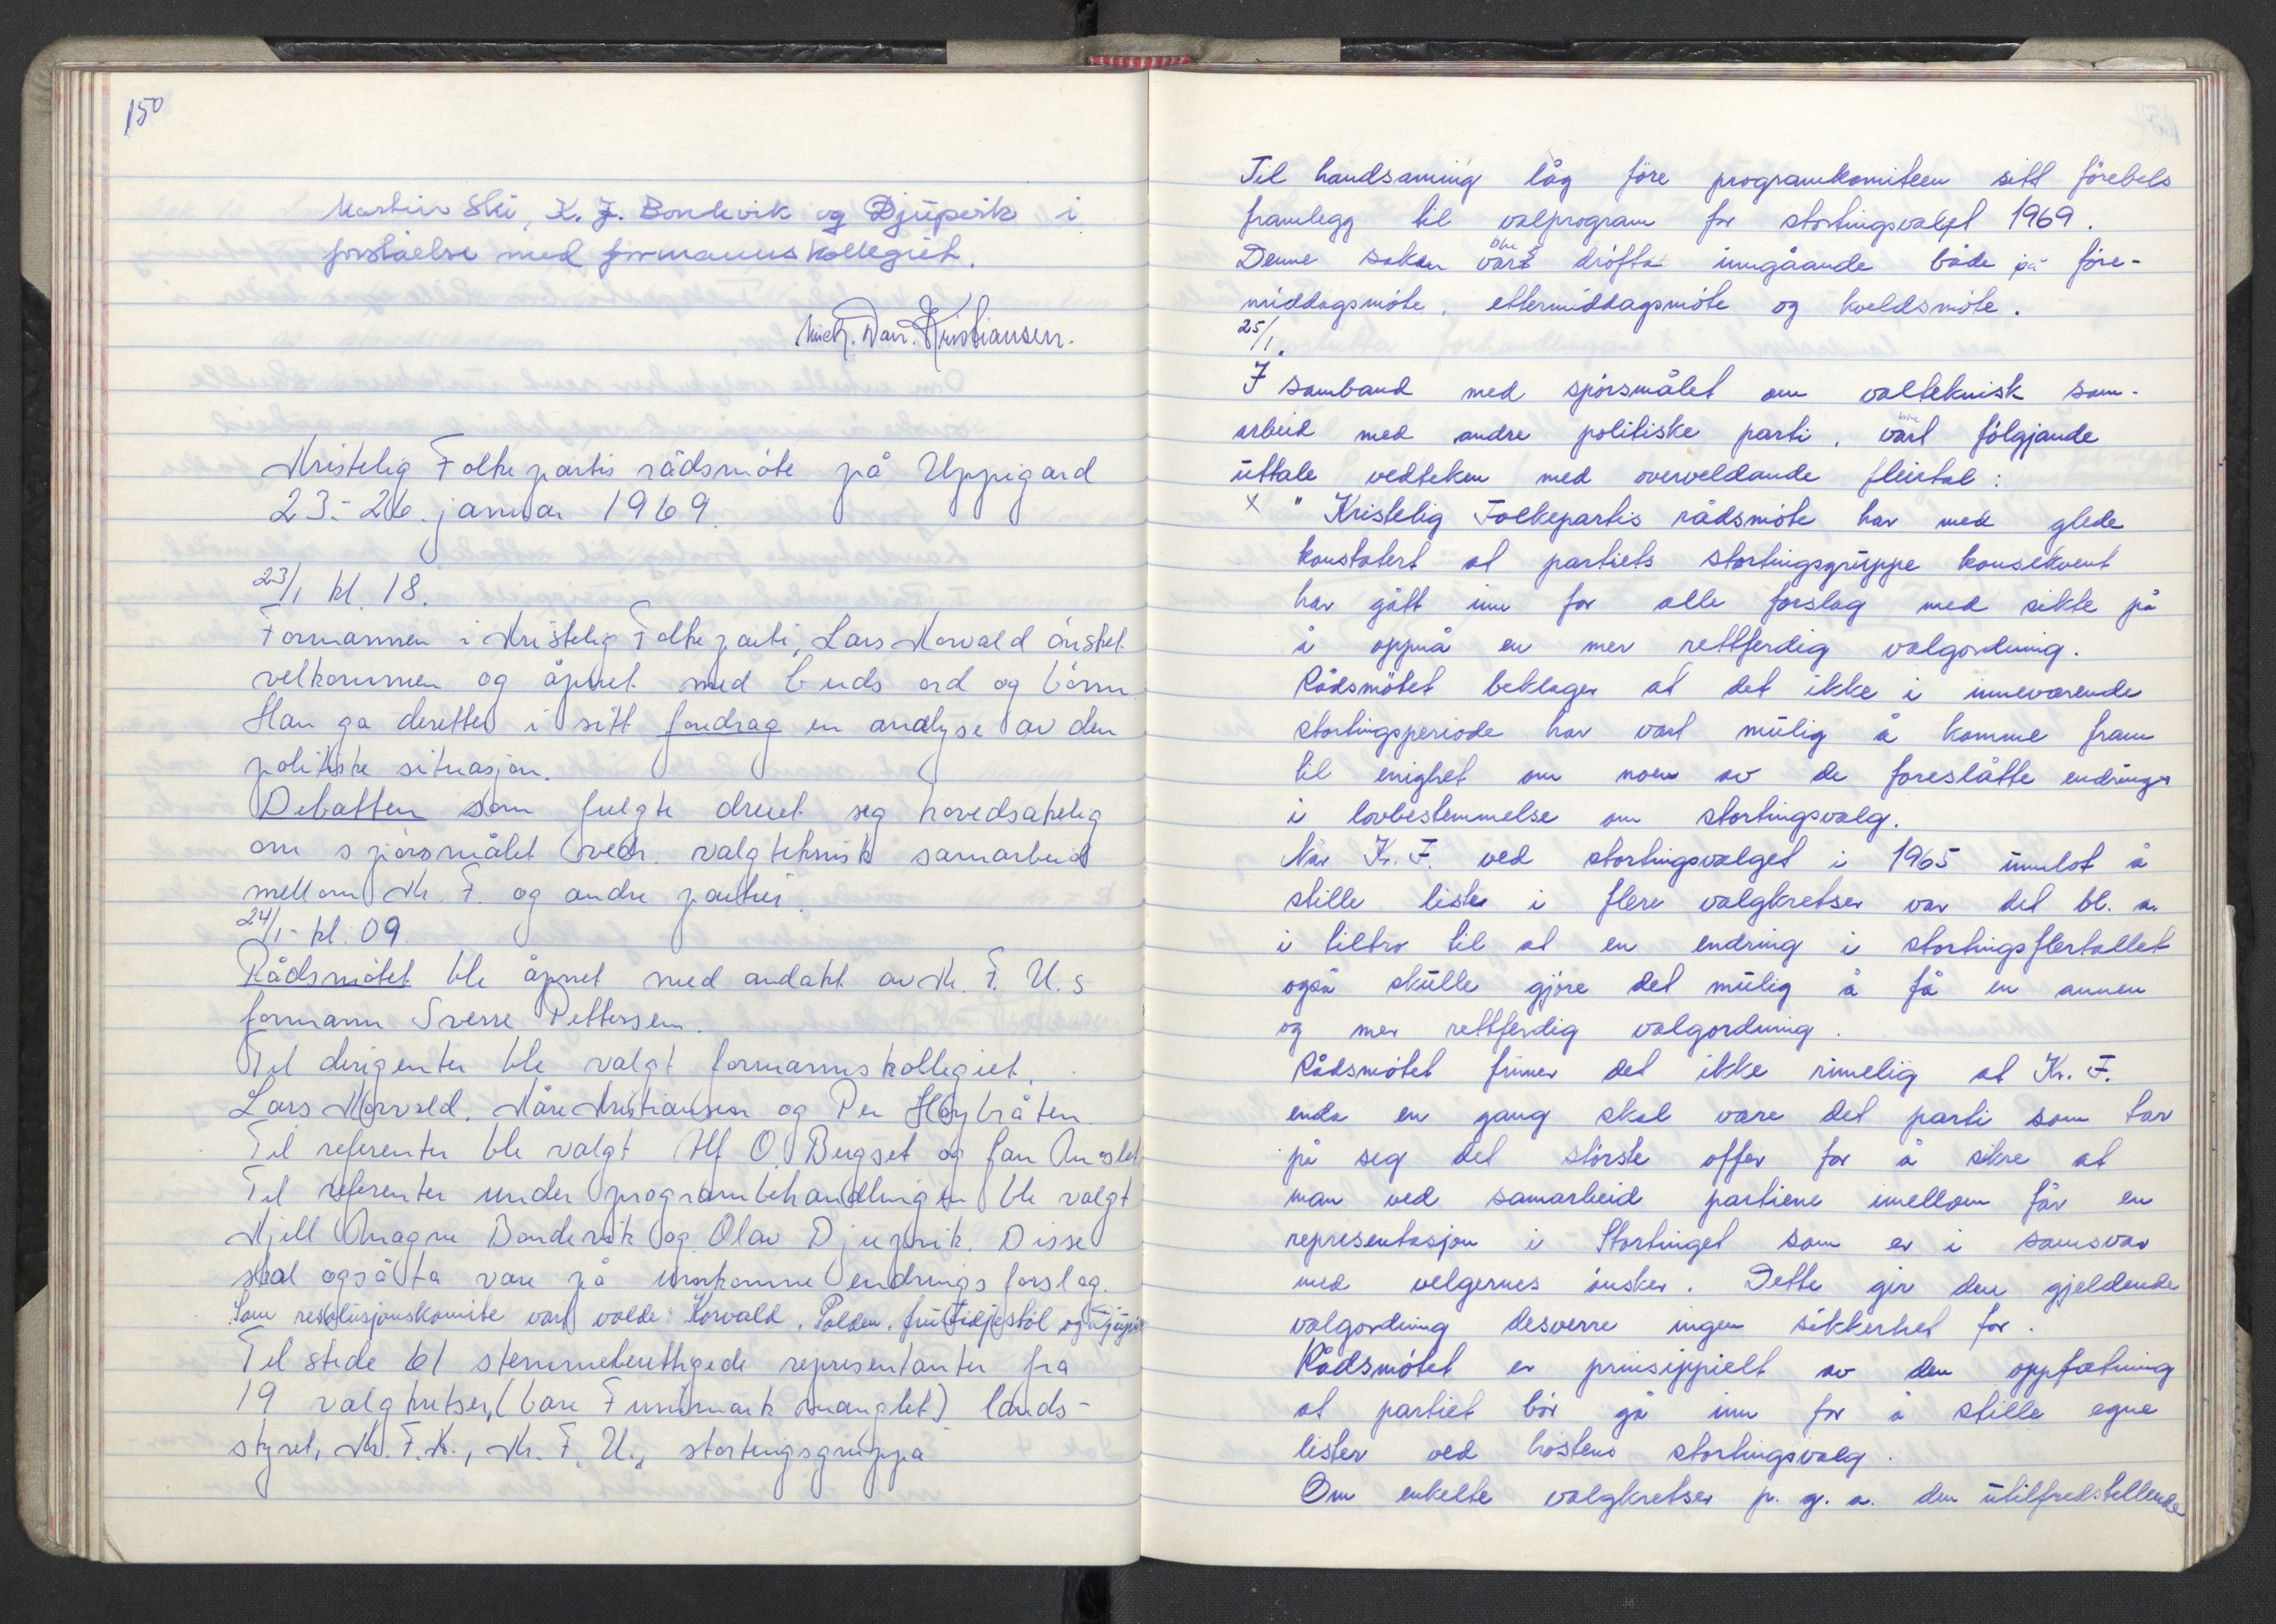 150
Martin Ski, K. J. Bondevik og Djupvik i
forståelse med formannskollegiet.
Mich. Dan. Kristiansen.
Kristelig Folkepartis rådsmöte på Uppigard
23.-26. januar 1969.
23/1 kl. 18.
Formannen i Kristelig Folkeparti, Lars Korvald önsket
velkommen og åpnet med Guds ord og bönn
Han ga deretter i sitt foredrag en analyse av den
politiske situasjon.
Debatten som fulgte dreiet seg hovedsakelig
om spörsmålet vedr. valgteknisk samarbeid
mellom Kr. F. og andre partier.
24/1- kl. 09
Rådsmötet ble åpnet med andakt av Kr. F. U.s
formann Sverre Pettersen.
Til dirigenter ble valgt formannskollegiet,
Lars Korvald, Kåre Kristiansen og Per Höybråten
Til referenter ble valgt Alf O. Bugset og
Til referenter under programbehandlingen ble valgt
Kjell Magne Bondevik og Olav Djupvik. Disse
skal også ta vare på innkomne endringsforslag.
Som resolusjonskomite vart valde: Korvald, Polden, fru Tidjestöl og Djupvik
Til stede 61 stemmeberettigede representanter fra
19 valgkretser, (bare Finnmark manglet) lands-
styret, Kr. F. K., Kr. F. U., stortingsgruppa
Til handsaming låg före programkomiteen sitt förebels
framlegg til valprogram for stortingsvalget 1969.
ble
Denne saken vart dröfta inngåande både på före-
middagsmöte, ettermiddagsmöte og kveldsmöte.
25/1.
I samband med spörsmålet om valteknisk sam-
ble
arbeid med andre politiske parti, vart fölgjande
uttale vedteken med overveldande fleirtal:
x " Kristelig Folkepartis rådsmöte har med glede
konstatert at partiets stortingsgruppe konsekvent
har gått inn for alle forslag med sikte på
å oppnå en mer rettferdig valgordning.
Rådsmötet beklager at det ikke i inneværende
stortingsperiode har vært mulig å komme fram
til enighet om noen av de foreslåtte endringer
i lovbestemmelse om stortingsvalg.
Når Kr. F. ved stortingsvalget i 1965 unnlot å
stille lister i flere valgkretser var det bl. a.
i tiltro til at en endring i stortingsflertallet
også skulle gjöre det mulig å få en annen
og mer rettferdig valgordning.
Rådsmötet finner det ikke rimelig at Kr. F.
enda en gang skal være det parti som tar
på seg det störste offer for å sikre at
man ved samarbeid partiene imellom får en
representasjon i Stortinget som er i samsvar
med velgernes önsker. Dette gir den gjeldende
valgordning desverre ingen sikkerhet for.
Rådsmötet er prinsippielt av den oppfatning
at partiet bör gå inn for å stille egne
lister ved höstens stortingsvalg.
Om enkelte valgkretser p. g. a. den utilfredstellende